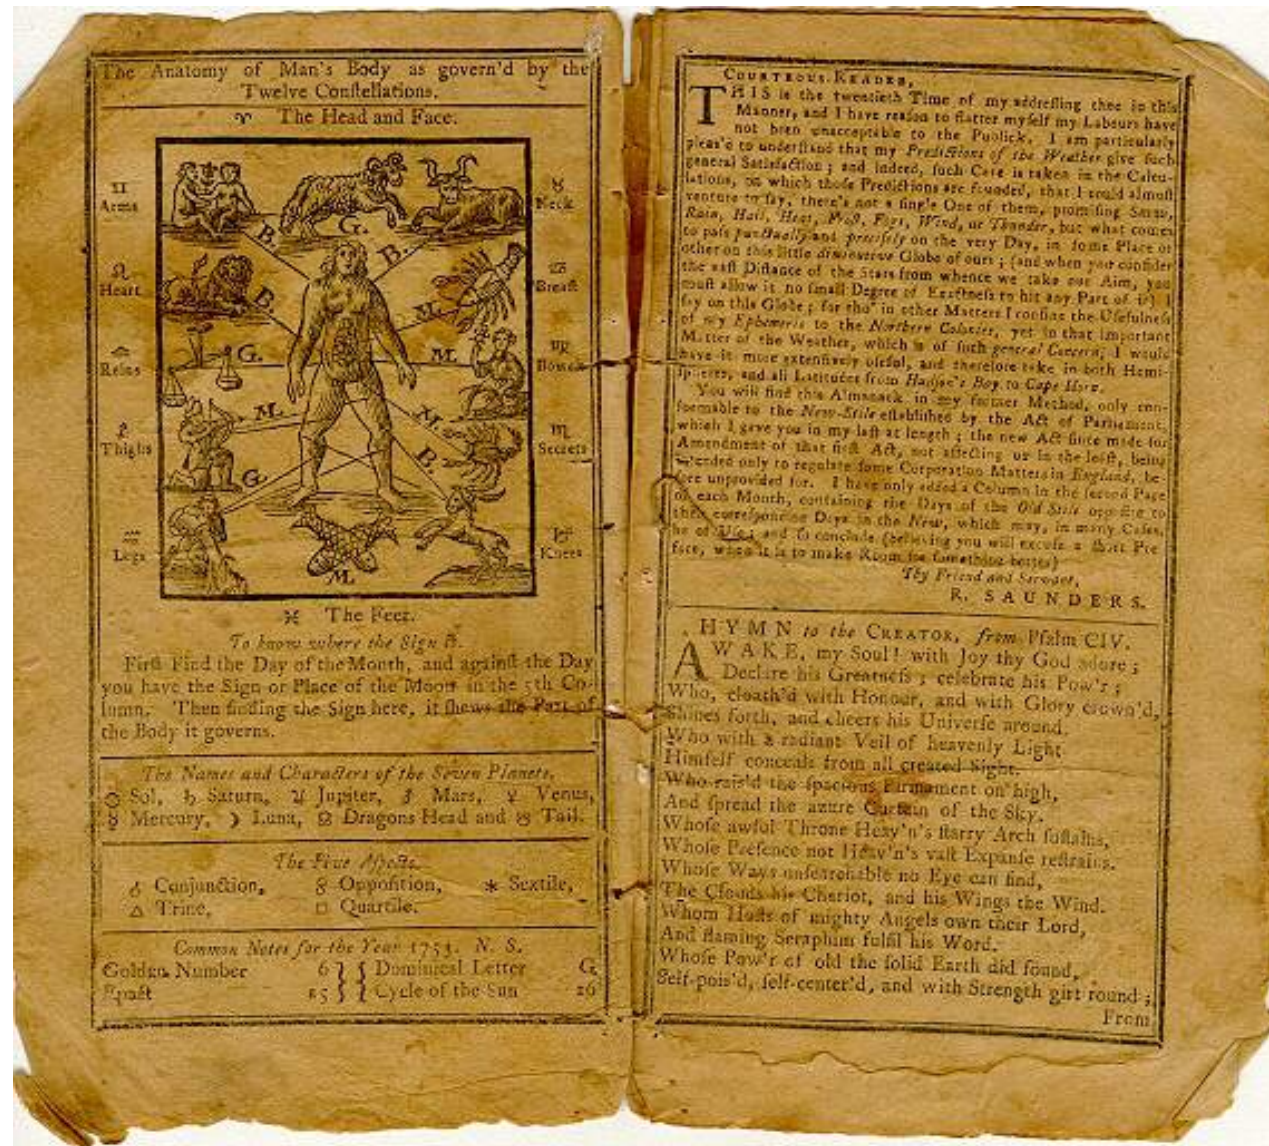 The Anatomy of Man's Body as govern'd by the
Twelve Conſtellations.
♈ The Head and Face.
♊
Arms
♉
Neck
♌
Heart
♋
Breaſt
♎
Reins
♍
Bowels
♐
Thighs
♏
Secrets
♒
Legs
♑
Knees
B. G. B.
B. M.
G. M.
M. M.
G. B.
M.
♓ The Feet.
To know where the Sign is.
Firſt Find the Day of the Month, and againſt the Day
you have the Sign or Place of the Moon in the 5th Co-
lumn. Then finding the Sign here, it ſhews the Part of
the Body it governs.
The Names and Characters of the Seven Planets.
☉ Sol, ♄ Saturn, ♃ Jupiter, ♂ Mars, ♀ Venus,
☿ Mercury, ☽ Luna, ☊ Dragons Head and ☋ Tail.
The Five Aſpects.
☌ Conjunction, ☍ Oppoſition, ⚹ Sextile,
△ Trine, □ Quartile.
Common Notes for the Year 1753. N. S.
Golden Number 6 } { Dominical Letter G
Epact 25 } { Cycle of the Sun 26
COURTEOUS READER,
THIS is the twentieth Time of my addreſſing thee in this
Manner, and I have reaſon to flatter myſelf my Labours have
not been unacceptable to the Publick. I am particularly
pleas'd to underſtand that my Predictions of the Weather give ſuch
general Satisfaction; and indeed, ſuch Care is taken in the Calcu-
lations, on which thoſe Predictions are founded, that I could almoſt
venture to ſay, there's not a ſingle One of them, promiſing Snow,
Rain, Hail, Heat, Froſt, Fogs, Wind, or Thunder, but what comes
to paſs punctually and preciſely on the very Day, in ſome Place or
other on this little diminutive Globe of ours; (and when you conſider
the vaſt Diſtance of the Stars from whence we take our Aim, you
muſt allow it no ſmall Degree of Exactneſs to hit any Part of it) I
ſay on this Globe; for tho' in other Matters I confine the Uſefulneſs
of my Ephemeris to the Northern Colonies, yet in that important
Matter of the Weather, which is of ſuch general Concern, I would
have it more extenſively uſeful, and therefore take in both Hemi-
ſpheres, and all Latitudes from Hudſon's Bay to Cape Horn.
You will find this Almanack in my former Method, only con-
formable to the New-Stile eſtabliſhed by the Act of Parliament,
which I gave you in my laſt at length; the new Act ſince made for
Amendment of that firſt Act, not affecting us in the leaſt, being
intended only to regulate ſome Corporation Matters in England, be-
fore unprovided for. I have only added a Column in the ſecond Page
of each Month, containing the Days of the Old Stile oppoſite to
their correſponding Days in the New, which may, in many Caſes,
be of Uſe; and ſo conclude (believing you will excuſe a ſhort Pre-
face, when it is to make Room for ſomething better)
Thy Friend and Servant,
R. SAUNDERS.
HYMN to the CREATOR, from Pſalm CIV.
AWAKE, my Soul! with Joy thy God adore;
Declare his Greatneſs; celebrate his Pow'r;
Who, cloath'd with Honour, and with Glory crown'd,
Shines forth, and cheers his Univerſe around.
Who with a radiant Veil of heavenly Light
Himſelf conceals from all created Sight.
Who rais'd the ſpacious Firmament on high,
And ſpread the azure Curtain of the Sky.
Whoſe awful Throne Heav'n's ſtarry Arch ſuſtains,
Whoſe Preſence not Heav'n's vaſt Expanſe reſtrains.
Whoſe Ways unſearchable no Eye can find,
The Clouds his Chariot, and his Wings the Wind.
Whom Hoſts of mighty Angels own their Lord,
And flaming Seraphim fulfil his Word.
Whoſe Pow'r of old the ſolid Earth did found,
Self-pois'd, ſelf-center'd, and with Strength girt round;
From